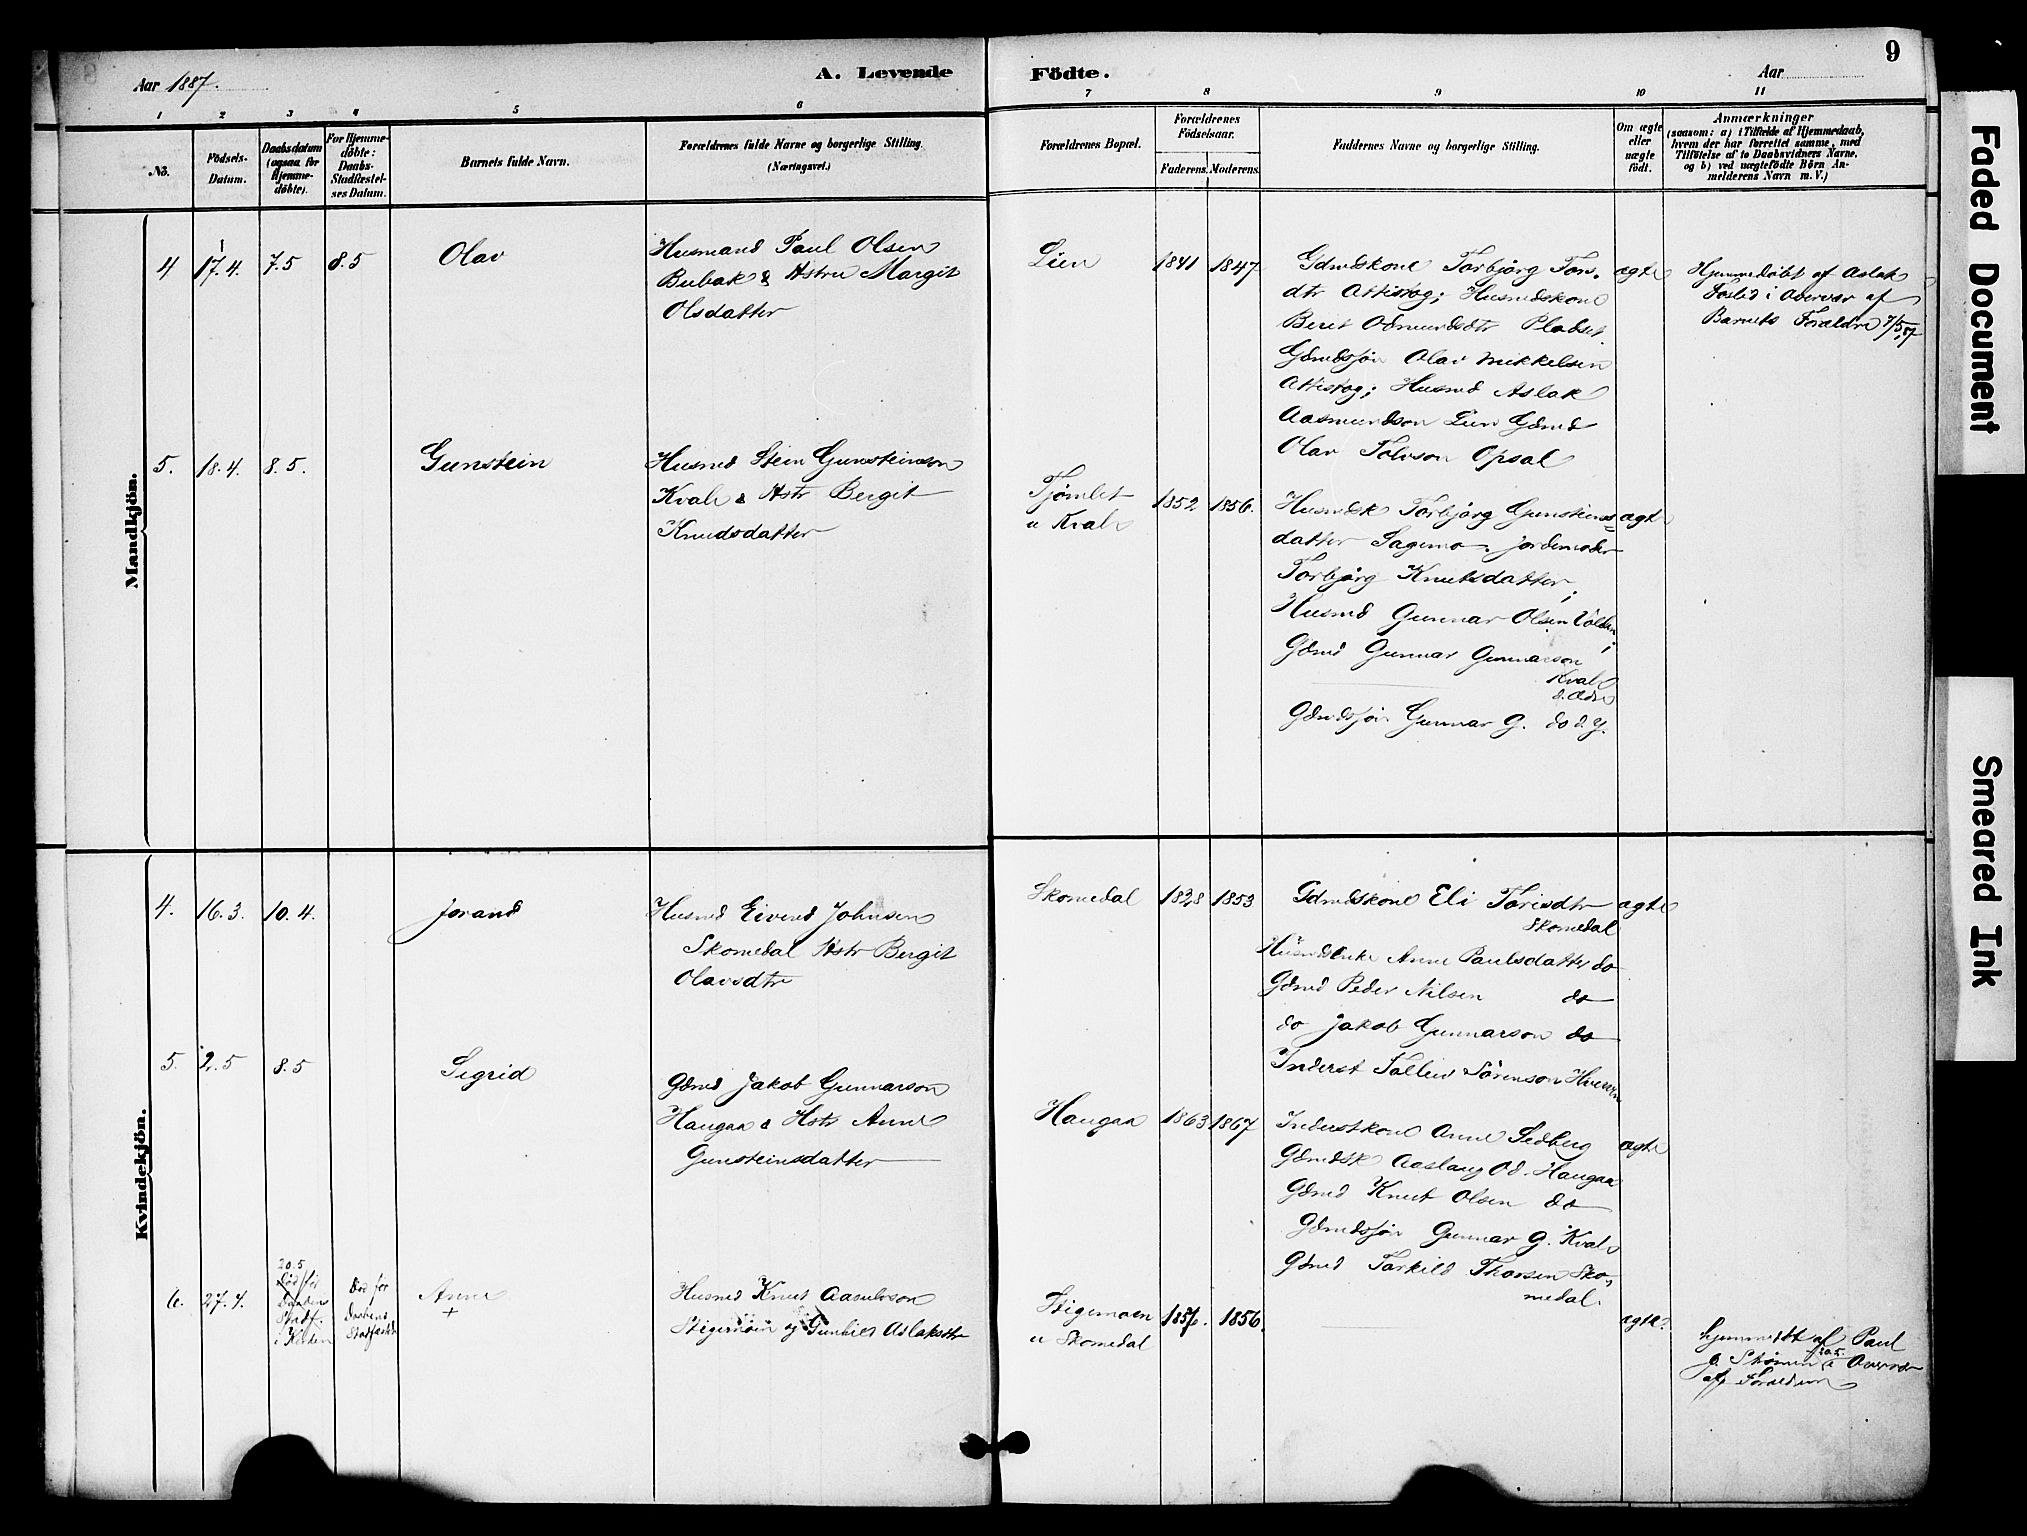 Aar 1887.
A. Levende
Födte.
Aar
9
1 2 3 4 5 6 7 8 9 10 11
No.
Födsels-
Datum.
Daabsdatum
(ogsaa for
Hjemme-
döbte).
For Hjemme-
döbte:
Daabs-
Stadfæstel-
ses Datum.
Barnets fulde Navn.
Forældrenes fulde Navne og borgerlige Stilling.
(Næringsvei.)
Forældrenes Bopæl.
Forældrenes
Födselsaar.
Faderens. Moderens.
Faddernes Navne og borgerlige Stilling.
Om ægte
eller
uægte
födt.
Anmærkninger
(saasom: a) i Tilfælde af Hjemmedaab,
hvem der har forrettet samme, med
Tilföielse af to Daabsvidners Navne,
og b) ved uægtefödte Börn An-
melderens Navn m. V.)
Mandkjön.
4 17.4. 7.5 8.5 Olav
Husmand Paul Olsen
Bubak & Hstru Margit
Olsdatter
Lien 1841 1847
Gdmdskone Torbjörg Tors-
dtr Attistog; Husmdskone
Berit Odmundsdtr Pladset
Gdmdssön Olav Mikkelsen
Attistog; Husmd Aslak
Aasmundson Lien Gdmd
Olav Tolvson Opsal
ægte
Hjemmedöbt af Aslak
i Overvær af
Barnets Forældre 7/5 87
5. 18.4. 8.5. Gunstein
Husmd Stein Gunsteinson
Kvale & Hstr Bergit
Knudsdatter
Tjömlet
u Kvale
1852 1856.
Husmdsk Torbjörg Gunsteins=
datter Sagemo. Jordemoder
Torbjörg Knutsdatter;
Husmd Gunnar Olsen Volden;
Gdmd Gunnar Gunnarson
Kvale
d. ældre
Gdmdssön Gunnar G. do d. y.
ægte
Kvindekjön.
4. 16.3. 10.4. Jorand
Husmd Eivind Johnsen
Skomedal Hstr Bergit
Olavsdtr
Skomedal 1828 1853
Gdmdskone Eli Torisdtr
Skomedal
Husmdsenke Anne Paulsdatter do
Gdmd Peder Nilsen do
do Jakob Gunnarson do
Inderst Tollev Sörenson
ægte
5. 2.5 8.5 Sigrid
Gdmd Jakob Gunnarson
Haugaa & Hstr Anne
Gunsteinsdatter
Haugaa 1863 1867
Inderstkone Anne Sedberg
Gdmdsk Aaslaug Od. Haugaa
Gdmd Knut Olsen do
Gdmdssön Gunnar G. Kvale
Gdmd Torkild Thorsen Sko-
medal.
ægte
6. 27.4.
20.5
Död för
Daabens
Stadf.
i Kirken
Död för
Daabens
Stadfæst
Anne
+
Husmd Knut Aasulvson
Stigemoen og Gunhild Aslaksdtr
Stigemoen
u Skomedal
1857. 1856.
ægte.
hjemmedbt af Paul
20.5. i Overvær
af Forældrene
Faded Document
Smeared Ink